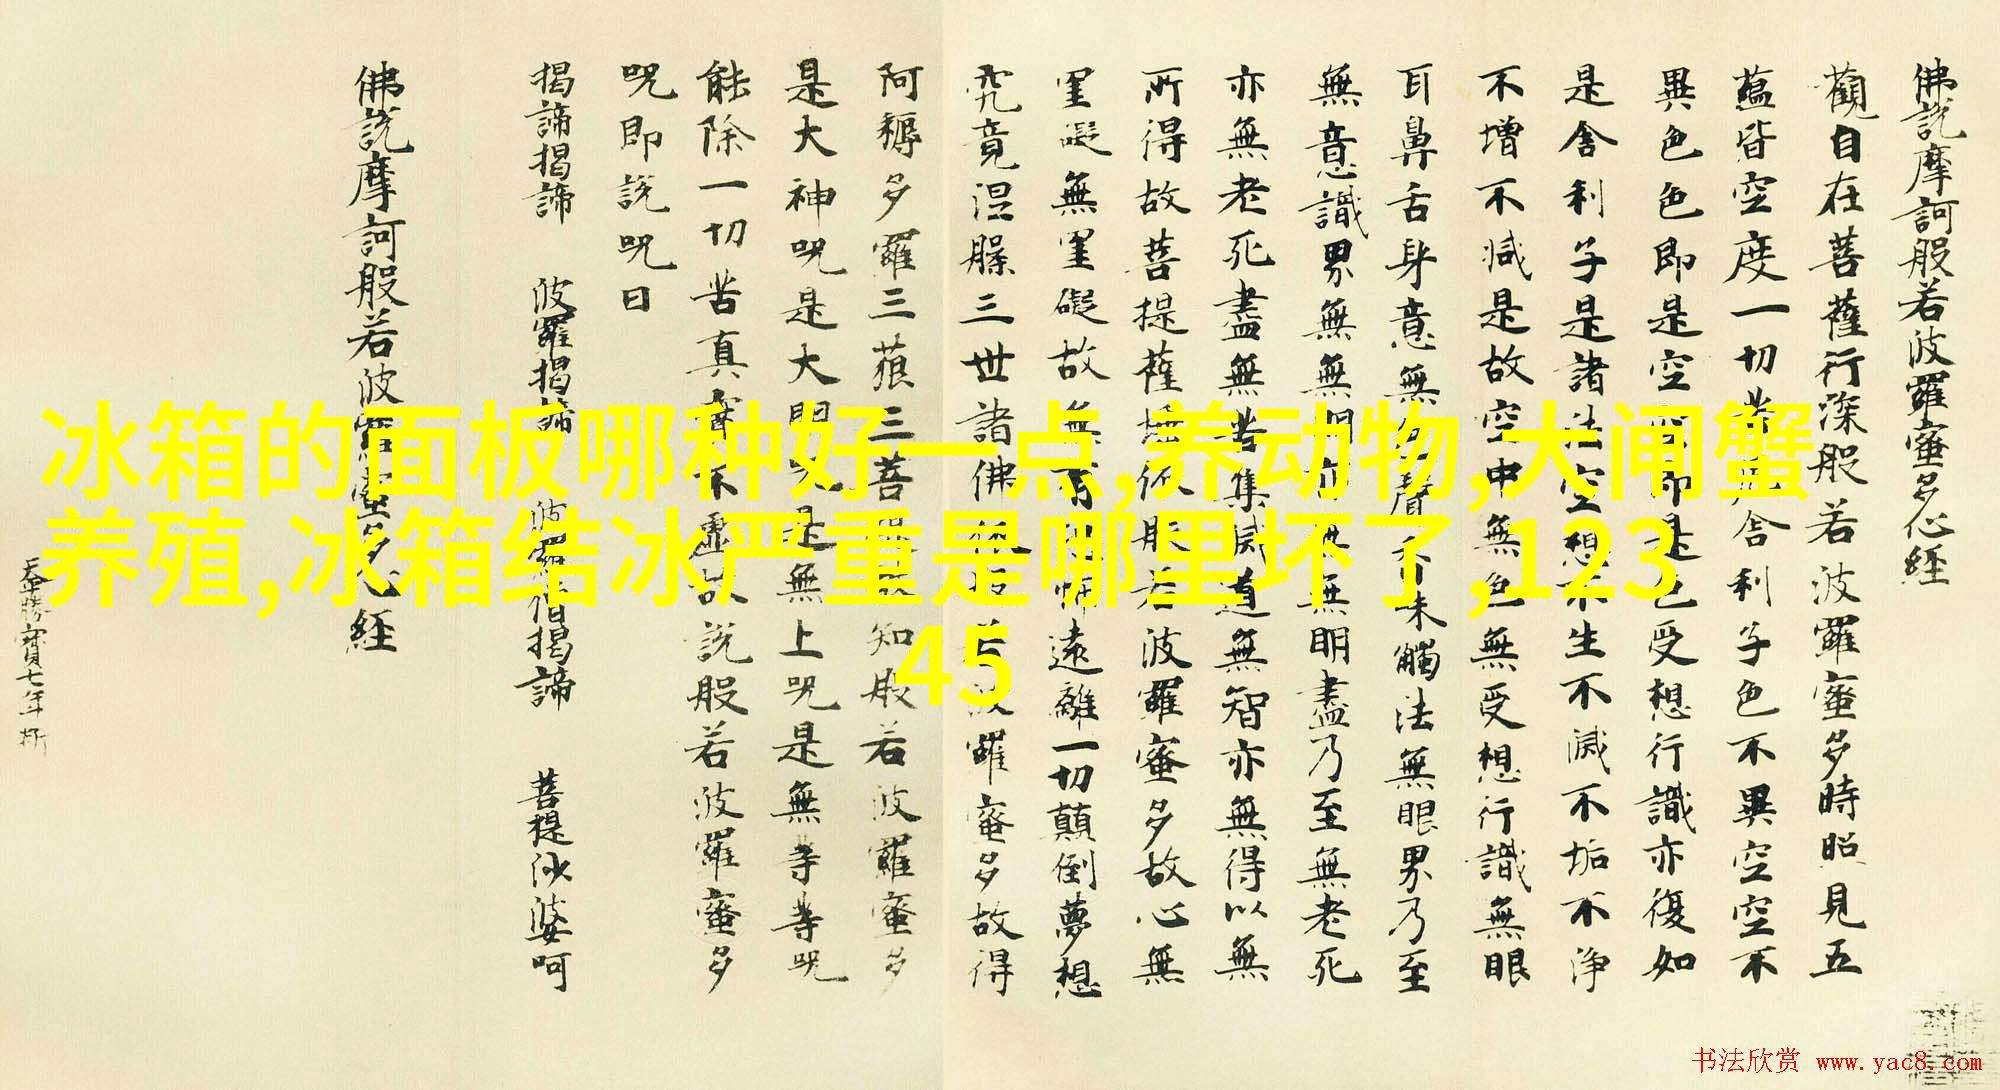 佛說摩訶般若波羅蜜多心經
觀自在菩薩行深般若波羅蜜多時照見五
蘊皆空度一切苦厄舍利子色不異空空不
異色色即是空空即是色受想行識亦復如
是舍利子是諸法空想不生不滅不垢不淨
不增不減是故空中無色無受想行識無眼
耳鼻舌身意無色聲香味觸法無眼界乃至
無意識界無無明亦無無明盡乃至無老死
亦無老死盡無苦集滅道無智亦無得以無
所得故菩提薩埵依般若波羅蜜多故心無
罣礙無罣礙故無有恐怖遠離一切顛倒夢想
究竟涅槃三世諸佛依般若波羅蜜多故得
阿耨多羅三藐三菩提故知般若波羅蜜多
是大神咒是大明咒是無上咒是無等等咒
能除一切苦真實不虛故說般若波羅蜜多
咒即說咒曰
揭諦揭諦 波羅揭諦 波羅僧揭諦 菩提娑婆呵
佛說摩訶般若波羅蜜多心經
天平勝寶七年
冰箱的面板哪种好一点,养动物,大闸蟹
养殖,冰箱结冰严重是哪里坏了,123
45
书法欣赏 www.yac8.com